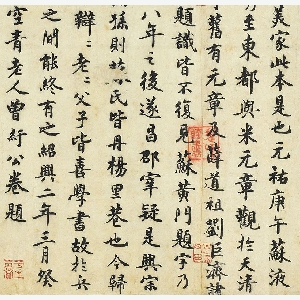 美家此本是元祐庚午蘇液
至東都與米元章觀於天清
舊有元章及薛道祖劉巨濟諸
題識皆不復見蘇黃門題字乃
八年之後遂昌邵宰疑是興宗
孫則蘇氏皆丹楊里巷也今歸
辯〻老〻父子皆喜學書故於兵
之間能終有之紹興二年三月癸
空青老人曾紆公卷題